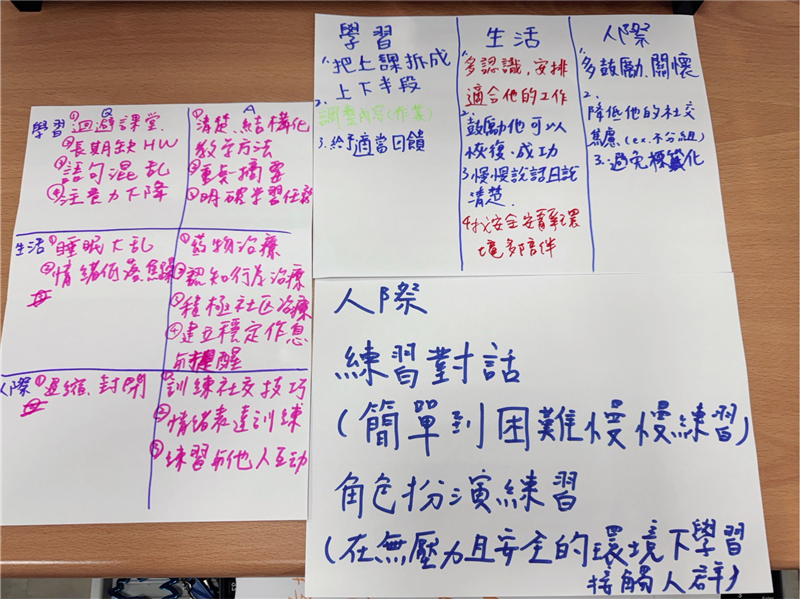 Q
A
學習
①迴避課堂
②長期缺HW
③語句混乱
④注意力下降
①清楚、結構化
教学方法
②重點摘要
③明確学習任務
生活
①睡眠大乱
②情緒低落、焦躁
①药物治療
②認知行为治療
③積極社区治療
④建立穩定作息
与提醒
人際
①退縮、封閉
①訓練社交技巧
②情緒表達訓練
③練習与他人互动
學習
1.把上課拆成
上下半段
2.
調整內容(作業)
3.給予適當回饋
生活
1.
多認識,安排
適合他的工作
2.
鼓勵他可以
恢復、成功
3.慢慢說話且說
清楚
4.找安全安靜環
境多陪伴
人際
1.
多鼓勵、關懷
2.
降低他的社交
焦慮(ex.不分組)
3.避免標籤化
人際
練習對話
(簡單到困難慢慢練習)
角色扮演練習
(在無壓力且安全的環境下學習
接觸人群)